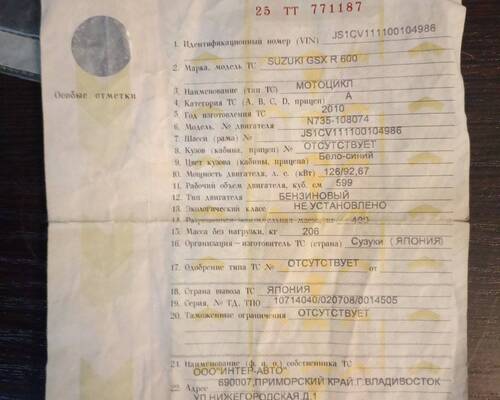 25 ТТ 771187
Особые отметки
1. Идентификационный номер (VIN) JS1CV111100104986
2. Марка, модель ТС SUZUKI GSX R 600
3. Наименование (тип ТС) МОТОЦИКЛ
4. Категория ТС (А, В, С, D, прицеп) А
5. Год изготовления ТС 2010
6. Модель, № двигателя N735-108074
7. Шасси (рама) № JS1CV111100104986
8. Кузов (кабина, прицеп) № ОТСУТСТВУЕТ
9. Цвет кузова (кабины, прицепа) Бело-синий
10. Мощность двигателя, л. с. (кВт) 126/92,67
11. Рабочий объем двигателя, куб. см 599
12. Тип двигателя БЕНЗИНОВЫЙ
13. Экологический класс НЕ УСТАНОВЛЕНО
14.
15. Масса без нагрузки, кг 206
16. Организация – изготовитель ТС (страна) Сузуки (ЯПОНИЯ)
17. Одобрение типа ТС № ОТСУТСТВУЕТ от
18. Страна вывоза ТС ЯПОНИЯ
19. Серия, № ТД, ТПО 10714040/020708/0014505
20. Таможенные ограничения ОТСУТСТВУЕТ
21. Наименование (ф. и. о.) собственника ТС
ООО"ИНТЕР-АВТО"
22. Адрес 690007,ПРИМОРСКИЙ КРАЙ,Г.ВЛАДИВОСТОК
УЛ.НИЖЕГОРОДСКАЯ,Д.1